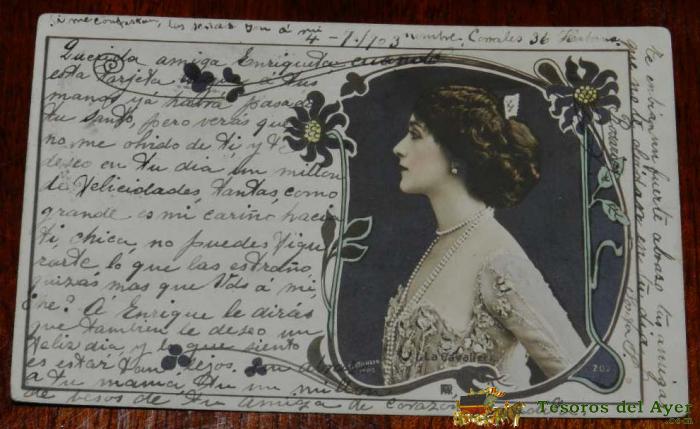 si me contestan, las señas son á mi
nombre, Corrales 36 Habana.
4-7/903
Querida amiga Enriqueta cuando
esta tarjeta llegue á tus
manos yá habrá pasado
tu santo, pero verás que
no me olvido de tí y te
deseo en tu dia un millon
de felicidades, tantas, como
grande es mi cariño hacia
ti, chica, no puedes figu
rarte, lo que las estraño
quizas mas que Vds á mi,
he? Á Enrique le dirás
que tambien le deseo un
feliz dia, y lo que siento
es estar tan lejos. Un abrazo
a tu mamá tu un millon
de besos de tu amiga de corazon
te envia un fuerte abrazo tu amiga
que no te olvidara en tu dia
Rosario
La Cavalieri
202
Tesoros del Ayer
.com